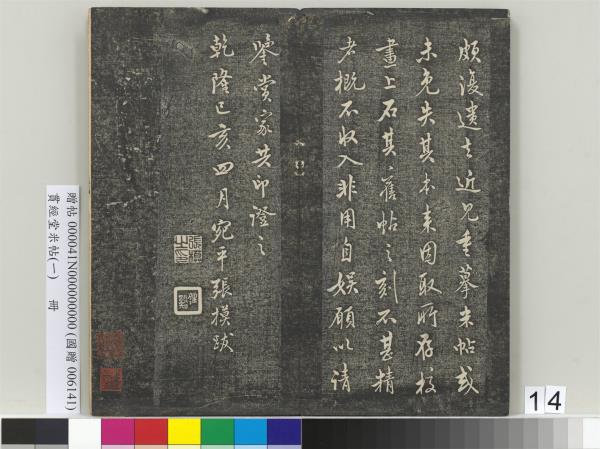 頗復遺去近兄重摹米帖或
未免失其本来因取所存校
畫上石其舊帖之刻不甚精
者概不收入非用自娱願以請
鑒赏家共印證之
乾隆己亥四月宛平張模跋
贈帖 000041N000000000 (國贈 006141)
貫經堂米帖(一) 冊
14